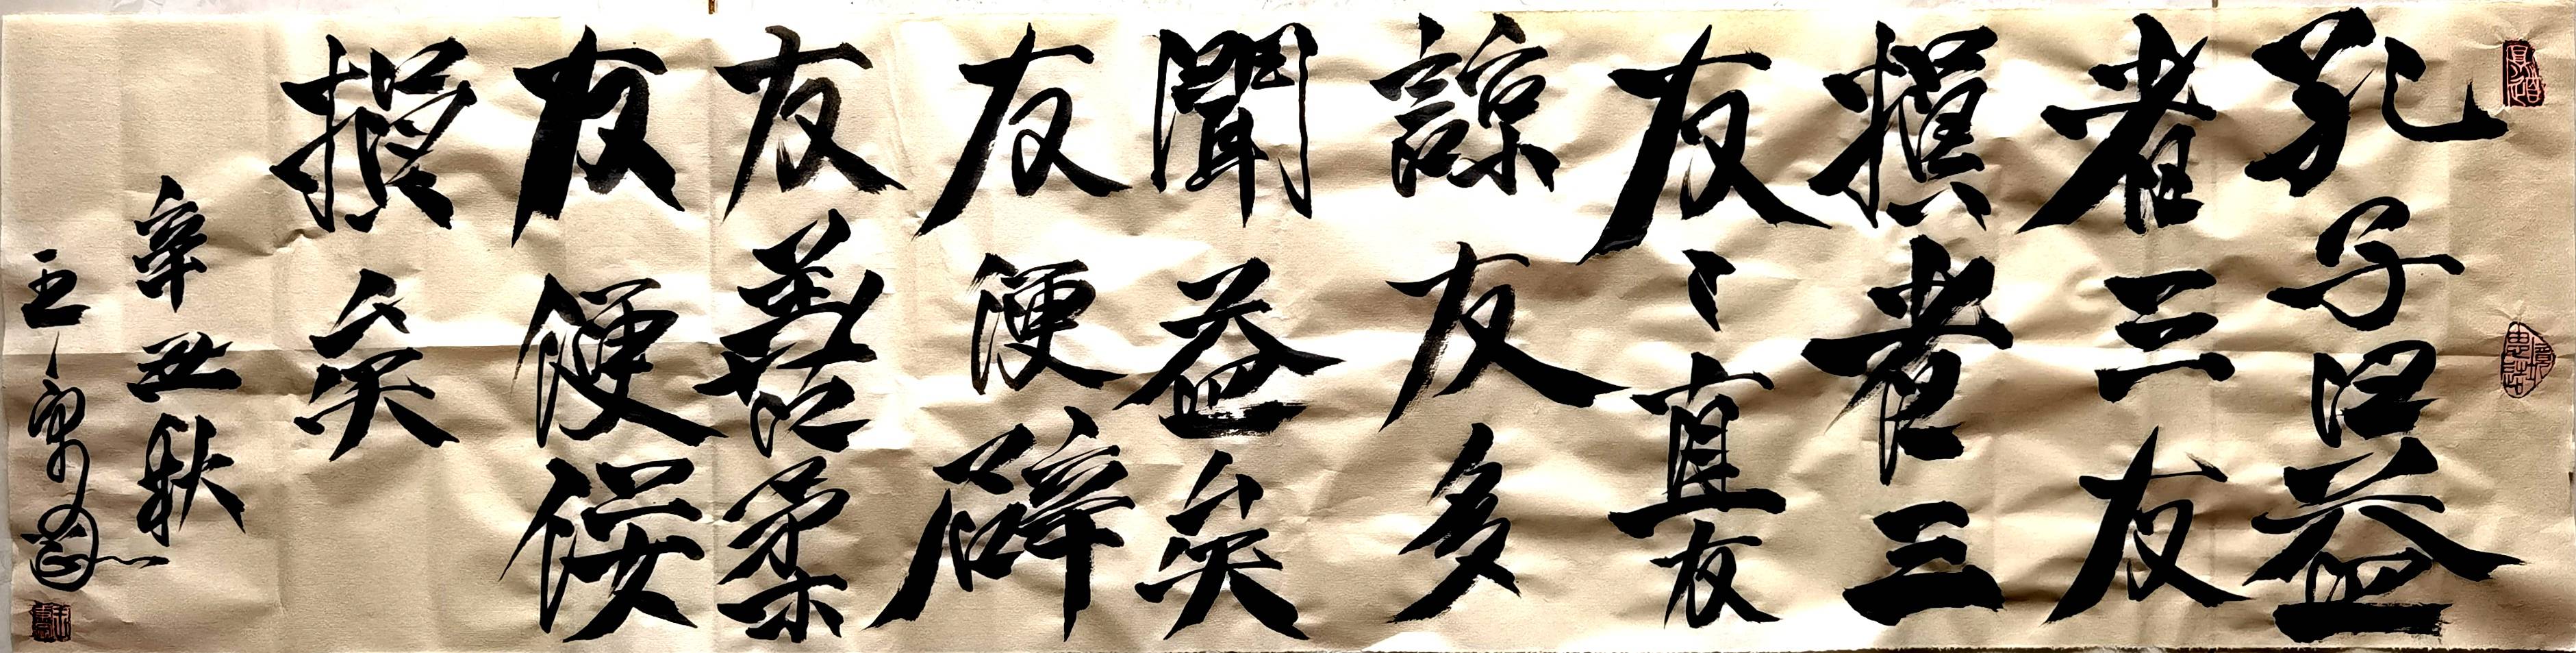 孔子曰益
者三友
損者三
友〻直友
諒友多
聞益矣
友便辟
友善柔
友便佞
損矣
辛丑秋
王